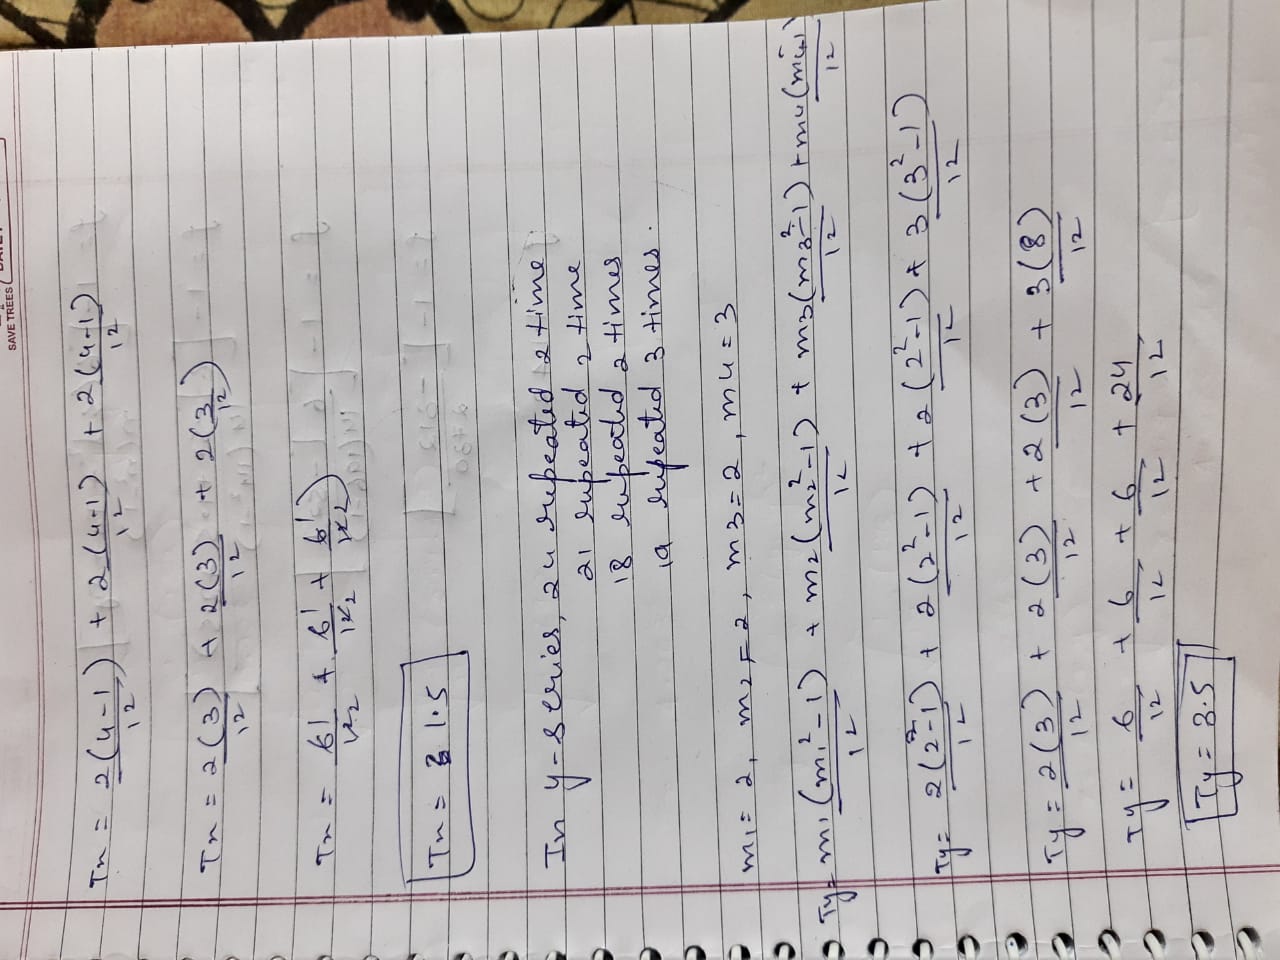 SAVE TREES
Tx = 2(4-1)/12 + 2(4-1)/12 + 2(4-1)/12
Tx = 2(3)/12 + 2(3)/12 + 2(3)/12
Tx = 6/12 + 6/12 + 6/12
Tx = 1.5
In y-series, 24 repeated 2 time
21 repeated 2 time
18 repeated 2 times
19 repeated 3 times.
m1 = 2, m2 = 2, m3 = 2, m4 = 3
Ty = m1(m1²-1)/12 + m2(m2²-1)/12 + m3(m3²-1)/12 + m4(m4²-1)/12
Ty = 2(2²-1)/12 + 2(2²-1)/12 + 2(2²-1)/12 + 3(3²-1)/12
Ty = 2(3)/12 + 2(3)/12 + 2(3)/12 + 3(8)/12
Ty = 6/12 + 6/12 + 6/12 + 24/12
Ty = 3.5